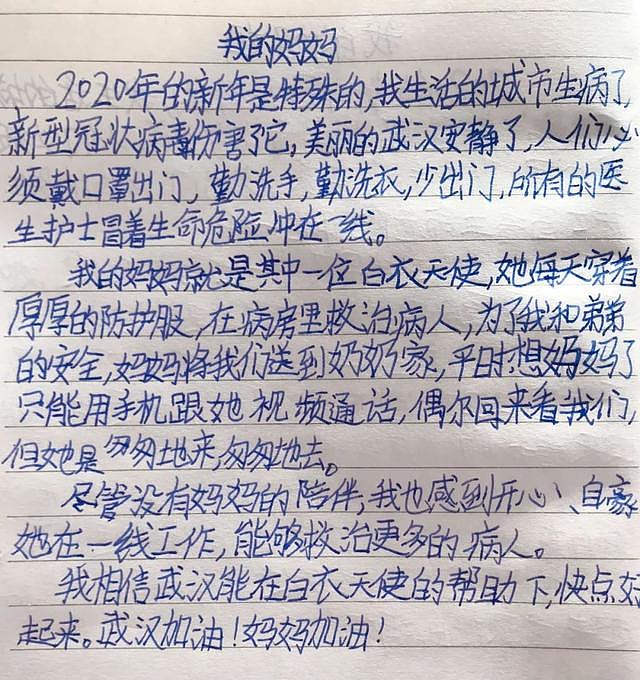 我的妈妈
2020年的新年是特殊的,我生活的城市生病了,
新型冠状病毒伤害了它,美丽的武汉安静了,人们必
须戴口罩出门,勤洗手,勤洗衣,少出门,所有的医
生护士冒着生命危险冲在一线。
我的妈妈就是其中一位白衣天使,她每天穿着
厚厚的防护服,在病房里救治病人,为了我和弟弟
的安全,妈妈将我们送到奶奶家,平时想妈妈了
只能用手机跟她视频通话,偶尔回来看我们,
但她是匆匆地来,匆匆地去。
尽管没有妈妈的陪伴,我也感到开心、自豪
她在一线工作,能够救治更多的病人。
我相信武汉能在白衣天使的帮助下,快点好
起来。武汉加油!妈妈加油!